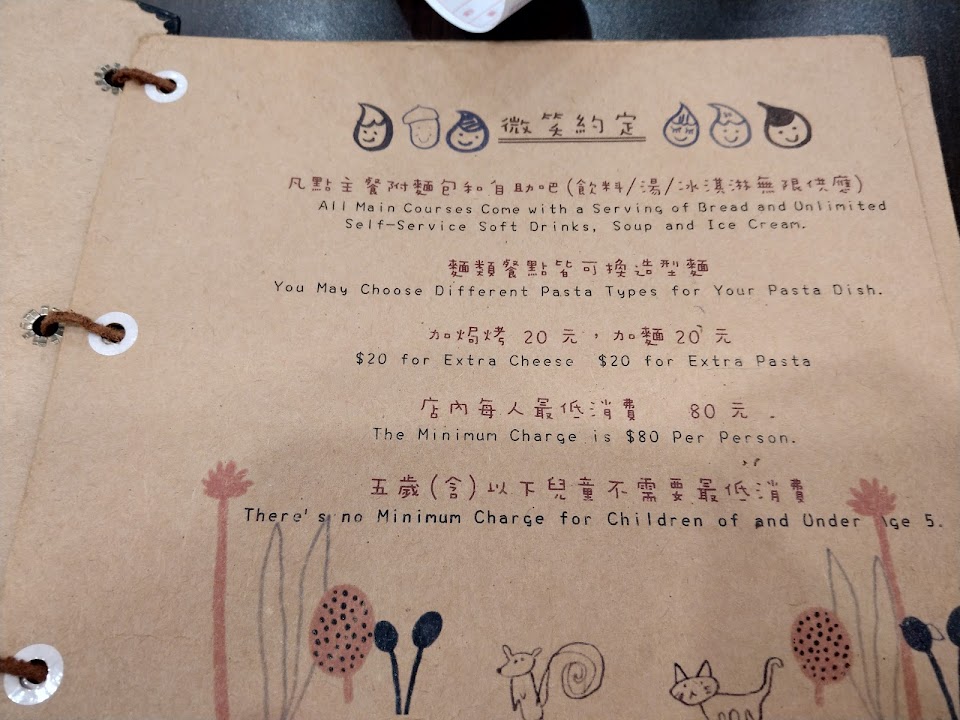 微笑約定
凡點主餐附麵包和自助吧(飲料/湯/冰淇淋無限供應)
All Main Courses Come with a Serving of Bread and Unlimited
Self-Service Soft Drinks, Soup and Ice Cream.
麵類餐點皆可換造型麵
You May Choose Different Pasta Types for Your Pasta Dish.
加焗烤 20 元，加麵 20 元
$20 for Extra Cheese $20 for Extra Pasta
店內每人最低消費 80 元.
The Minimum Charge is $80 Per Person.
五歲(含)以下兒童不需要最低消費
There's no Minimum Charge for Children of and Under Age 5.